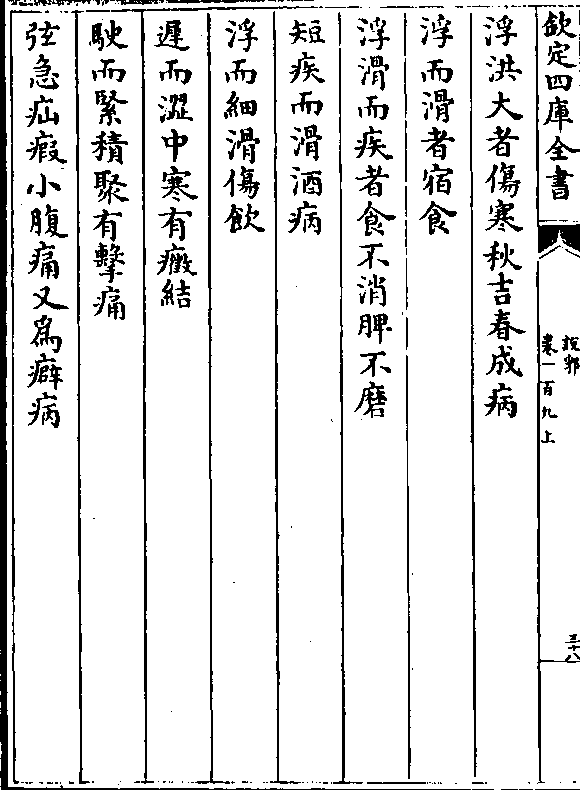 欽定四庫全書
說郛
卷一百九上
三十八
浮洪大者傷寒秋吉春成病
浮而滑者宿食
浮滑而疾者食不消脾不磨
短疾而滑酒病
浮而細滑傷飲
遲而澀中寒有癥結
駛而緊積聚有擊痛
弦急疝瘕小腹痛又為癖病